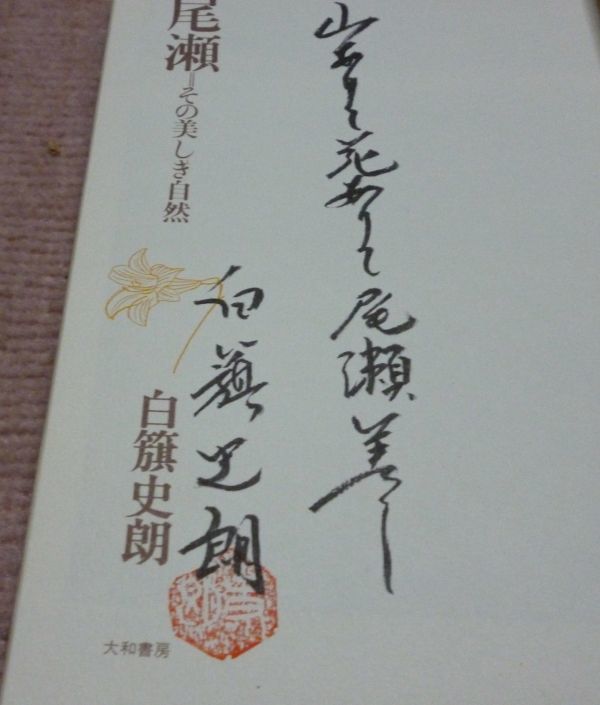 山ありて花ありて尾瀬美し
白籏史朗
尾瀬=その美しき自然
白籏史朗
大和書房